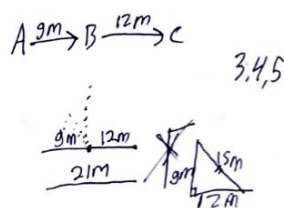 A 9m B 12m C
3,4,5
9m 12m
21m
9m 15m
12m